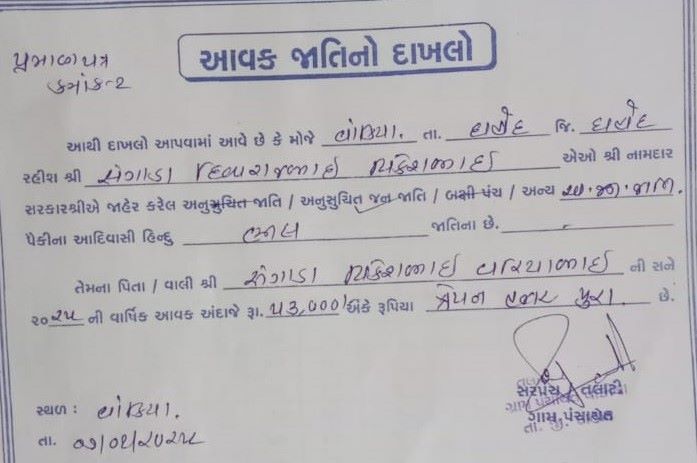 પ્રમાણપત્ર
ક્રમાંક-૨
આવક જાતિનો દાખલો
આથી દાખલો આપવામાં આવે છે કે મોજે તા. દાહોદ જિ. દાહોદ
રહીશ શ્રી સંગાડા એઓ શ્રી નામદાર
સરકારશ્રીએ જાહેર કરેલ અનુસુચિત જાતિ / અનુસુચિત જન જાતિ / બક્ષી પંચ / અન્ય અ.જ.જા.
પૈકીના આદિવાસી હિન્દુ ભીલ જાતિના છે.
તેમના પિતા / વાલી શ્રી સંગાડા ની સને
૨૦૨૫ ની વાર્ષિક આવક અંદાજે રૂા. ૫૩,૦૦૦/ અંકે રૂપિયા ત્રેપન હજાર પુરા. છે.
સરપંચ / તલાટી
ગ્રામ પંચાયત
સ્થળ :
તા.